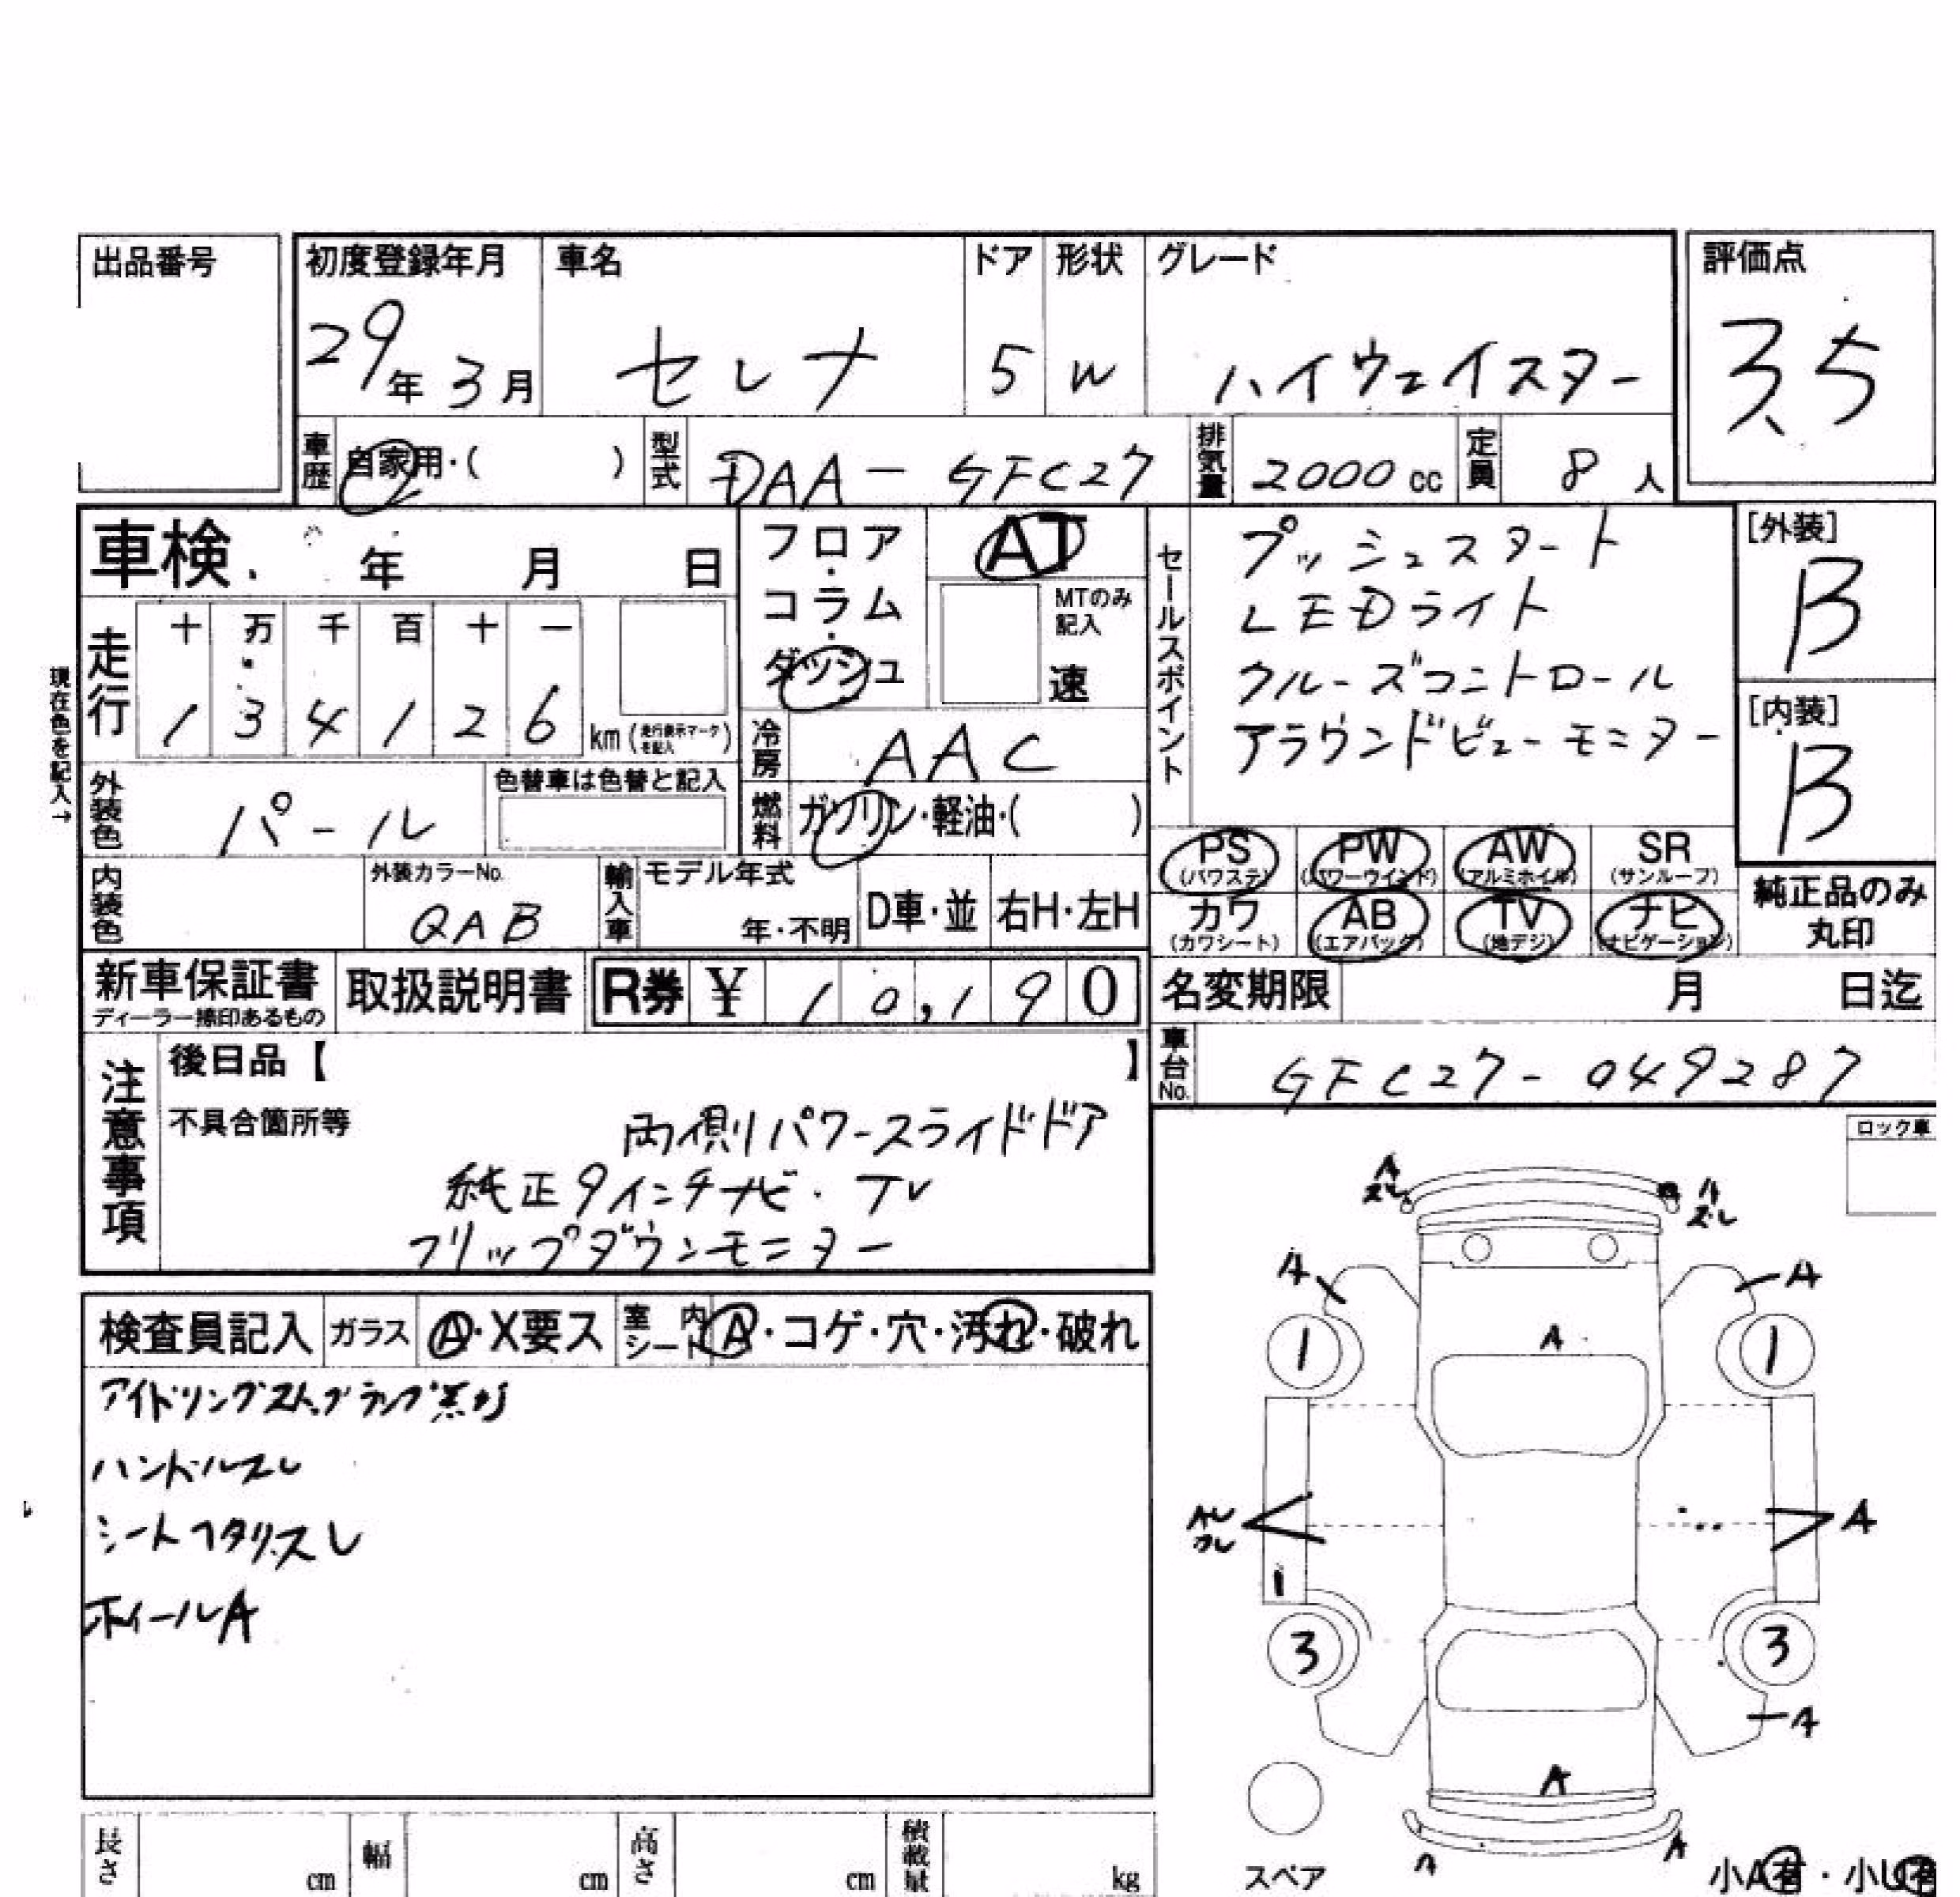 出品番号
初度登録年月 車名 ドア 形状 グレード 評価点
29年3月 セレナ 5 W ハイウェイスター 3.5
車歴 自家用・( ) 型式 DAA-GFC27 排気量 2000cc 定員 8人
車検 年 月 日
フロア・コラム・ダッシュ AT
MTのみ記入 速
セールスポイント
プッシュスタート
LEDライト
クルーズコントロール
アラウンドビューモニター
[外装] B
[内装] B
現在色を記入→
走行 十 万 千 百 十 一
1 3 4 1 2 6 km (走行表示マークを記入)
冷房 AAC
外装色 パール 色替車は色替と記入
燃料 ガソリン・軽油・( )
PS (パワステ) PW (パワーウインド) AW (アルミホイル) SR (サンルーフ)
カワ (カワシート) AB (エアバック) TV (地デジ) ナビ (ナビゲーション)
純正品のみ丸印
内装色 外装カラーNo. QAB 輸入車 モデル年式 年・不明 D車・並 右H・左H
新車保証書 ディーラー捺印あるもの 取扱説明書 R券 ¥ 10,190
名変期限 月 日迄
車台No. GFC27-049287
注意事項
後日品【 】
不具合箇所等 両側パワースライドドア
純正9インチナビ・TV
フリップダウンモニター
ロック車
検査員記入 ガラス A・X要ス 室内シート A・コゲ・穴・汚れ・破れ
アイドリングストップランプ点灯
ハンドルスレ
シートヘタリ、スレ
ホイールA
A スレ A スレ
A A
1 A 1
A A
1
3 3
A
A
A A
スペア
小A有・小U有
長さ cm 幅 cm 高さ cm 積載量 kg